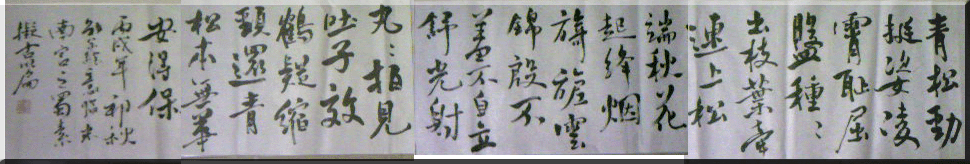 青松勁
挺姿凌
霄耻屈
盤種〻
出枝葉牽
連上松
端秋花
起絳烟
旖旎雲
錦殷不
羞不自立
舒光射
丸〻柏見
吐子效
鶴疑縮
頸還青
松本無華
安得保
丙戌年初秋
臨米
南宮之蜀素
擬古篇